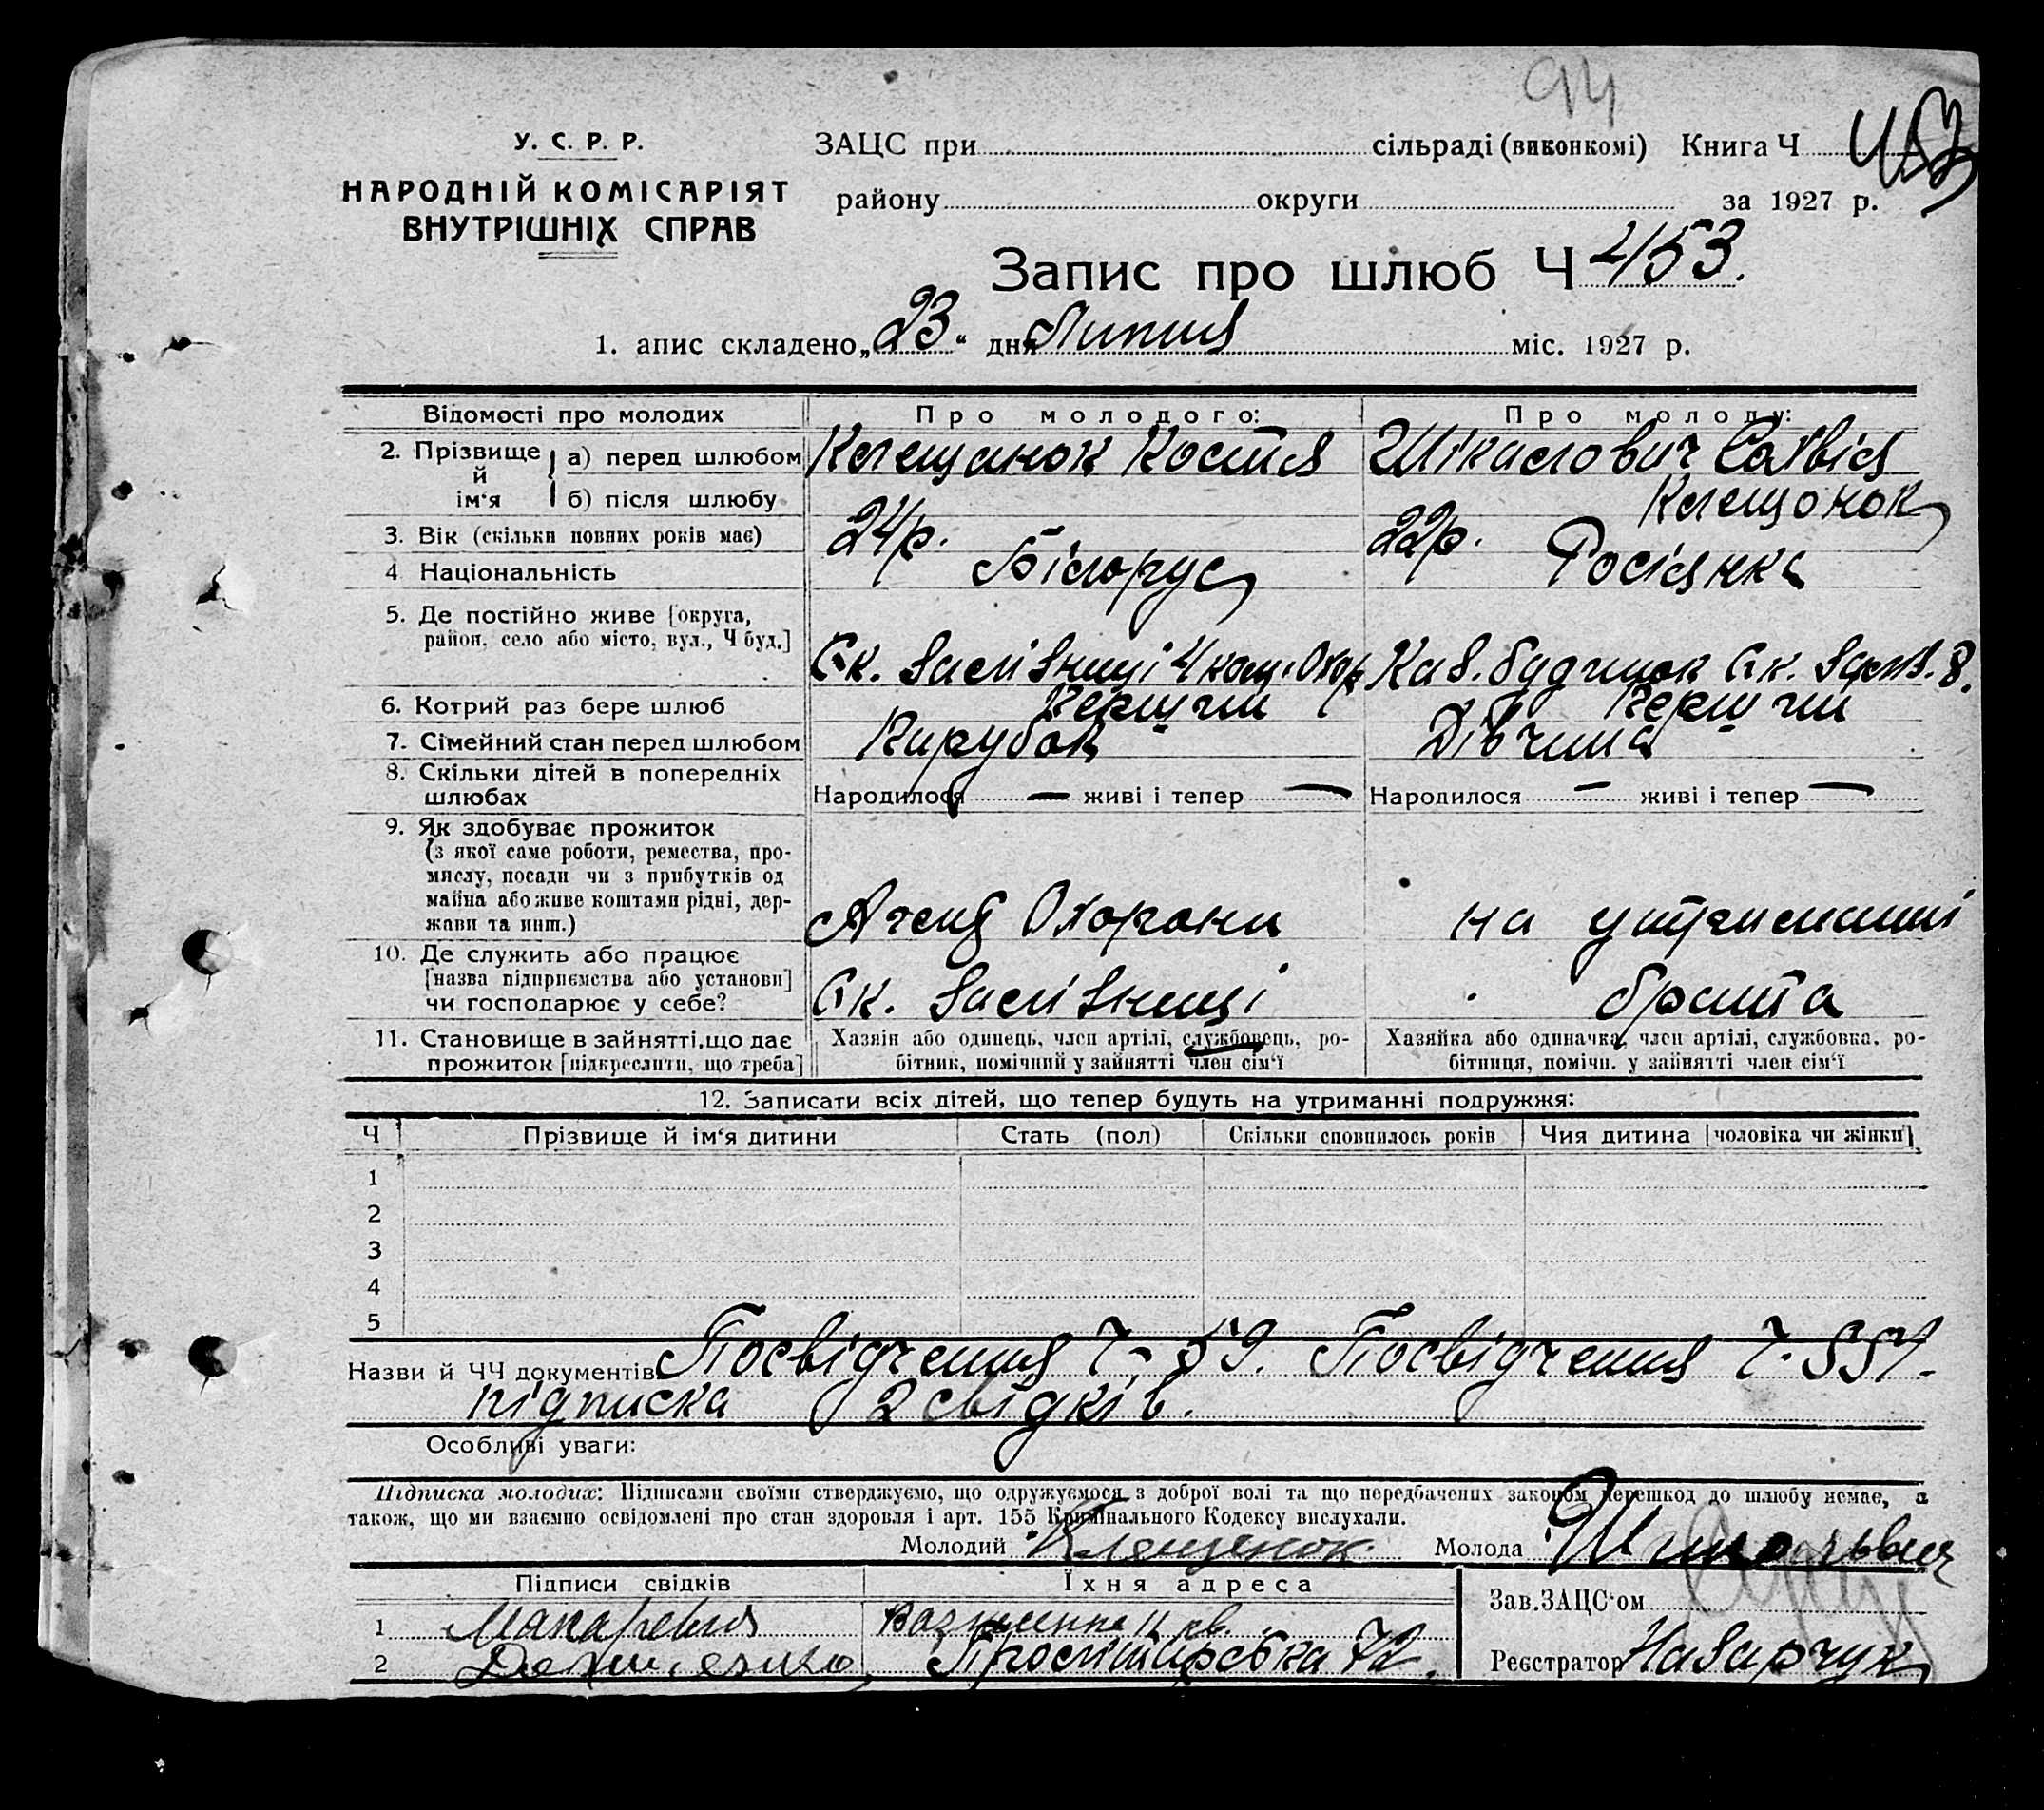 94
У. С. Р. Р.
НАРОДНІЙ КОМІСАРІЯТ
ВНУТРІШНІХ СПРАВ
ЗАЦС при сільраді (виконкомі) Книга Ч
району округи за 1927 р.
Запис про шлюб Ч 453.
1. апис складено „23“ дня Липня міс. 1927 р.
Відомості про молодих Про молодого: Про молоду:
2. Прізвище й ім‘я
а) перед шлюбом Клещанок Костя
б) після шлюбу Клещонок
3. Вік (скільки повних років має) 24 р. 22 р.
4 Національність Білорус Росіянка
5. Де постійно живе [округа,
район, село або місто, вул., Ч буд.]
6. Котрий раз бере шлюб Перший Перший
7. Сімейний стан перед шлюбом Парубок Дівчина
8. Скільки дітей в попередніх
шлюбах
Народилося — живі і тепер — Народилося — живі і тепер —
9. Як здобуває прожиток
(з якої саме роботи, ремества, про-
мислу, посади чи з прибутків од
майна або живе коштами рідні, дер-
жави та инш.)
Агент Охорони на утриманні
10. Де служить або працює
[назва підприємства або установи]
чи господарює у себе?
брата
11. Становище в зайнятті, що дає
прожиток [підкреслити, що треба]
Хазяїн або одинець, член артілі, службовець, ро-
бітник, помічний у зайнятті член сім‘ї
Хазяйка або одиначка, член артілі, службовка, ро-
бітниця, помічн. у зайнятті член сім‘ї
12. Записати всіх дітей, що тепер будуть на утриманні подружжя:
Ч Прізвище й ім‘я дитини Стать (пол) Скільки сповнилось років Чия дитина [чоловіка чи жінки]
1
2
3
4
5
Назви й ЧЧ документів Посвідчення Ч- 59. Посвідчення Ч- 557-
підписка 2 свідків.
Особливі уваги:
Підписка молодих: Підписами своїми стверджуємо, що одружуємося з доброї волі та що передбачених законом перешкод до шлюбу немає, а
також, що ми взаємно освідомлені про стан здоровля і арт. 155 Кримінального Кодексу вислухали.
Молодий Клещенок Молода
Підписи свідків Їхня адреса
1
2 72.
Зав. ЗАЦС‘ом
Реєстратор Назарчук